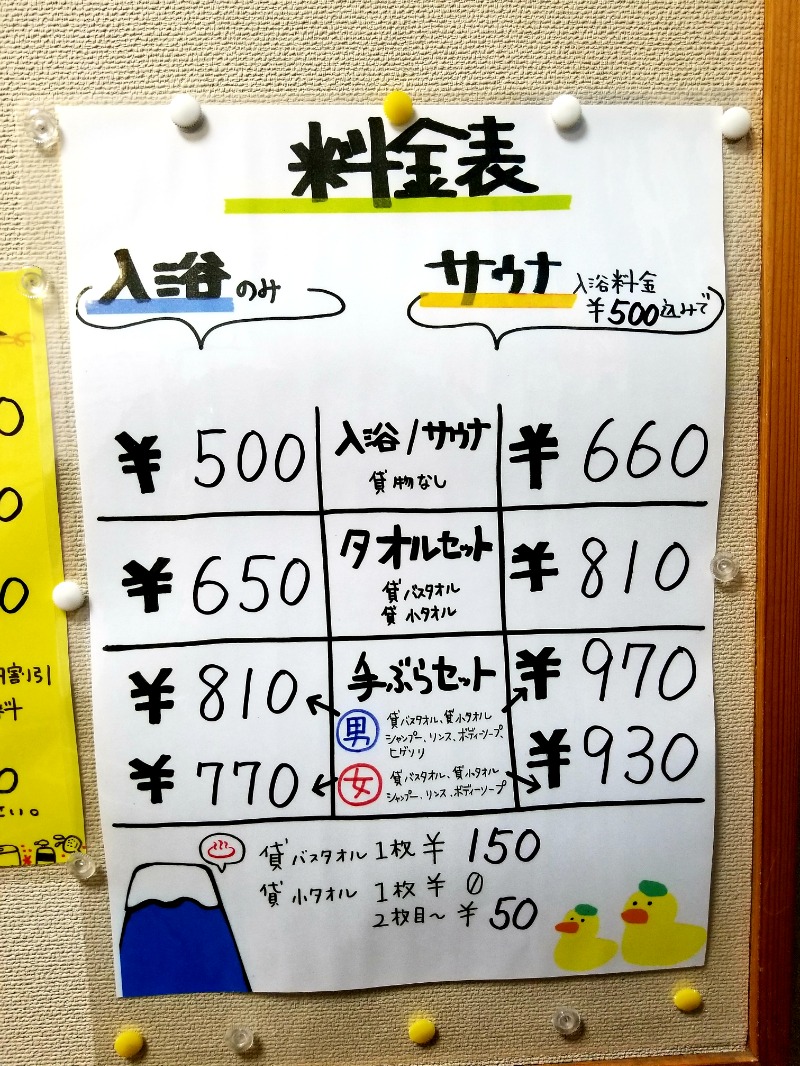 料金表
入浴のみ
サウナ 入浴料金
¥500込みで
¥500 入浴/サウナ ¥660
貸物なし
¥650 タオルセット ¥810
貸バスタオル
貸小タオル
¥810 手ぶらセット ¥970
男 貸バスタオル、貸小タオル
シャンプー、リンス、ボディーソープ
ヒゲソリ
¥770 女 貸バスタオル、貸小タオル ¥930
シャンプー、リンス、ボディーソープ
貸バスタオル 1枚 ¥150
貸小タオル 1枚 ¥0
2枚目〜 ¥50
0
0
0
割引
料
0
さい。